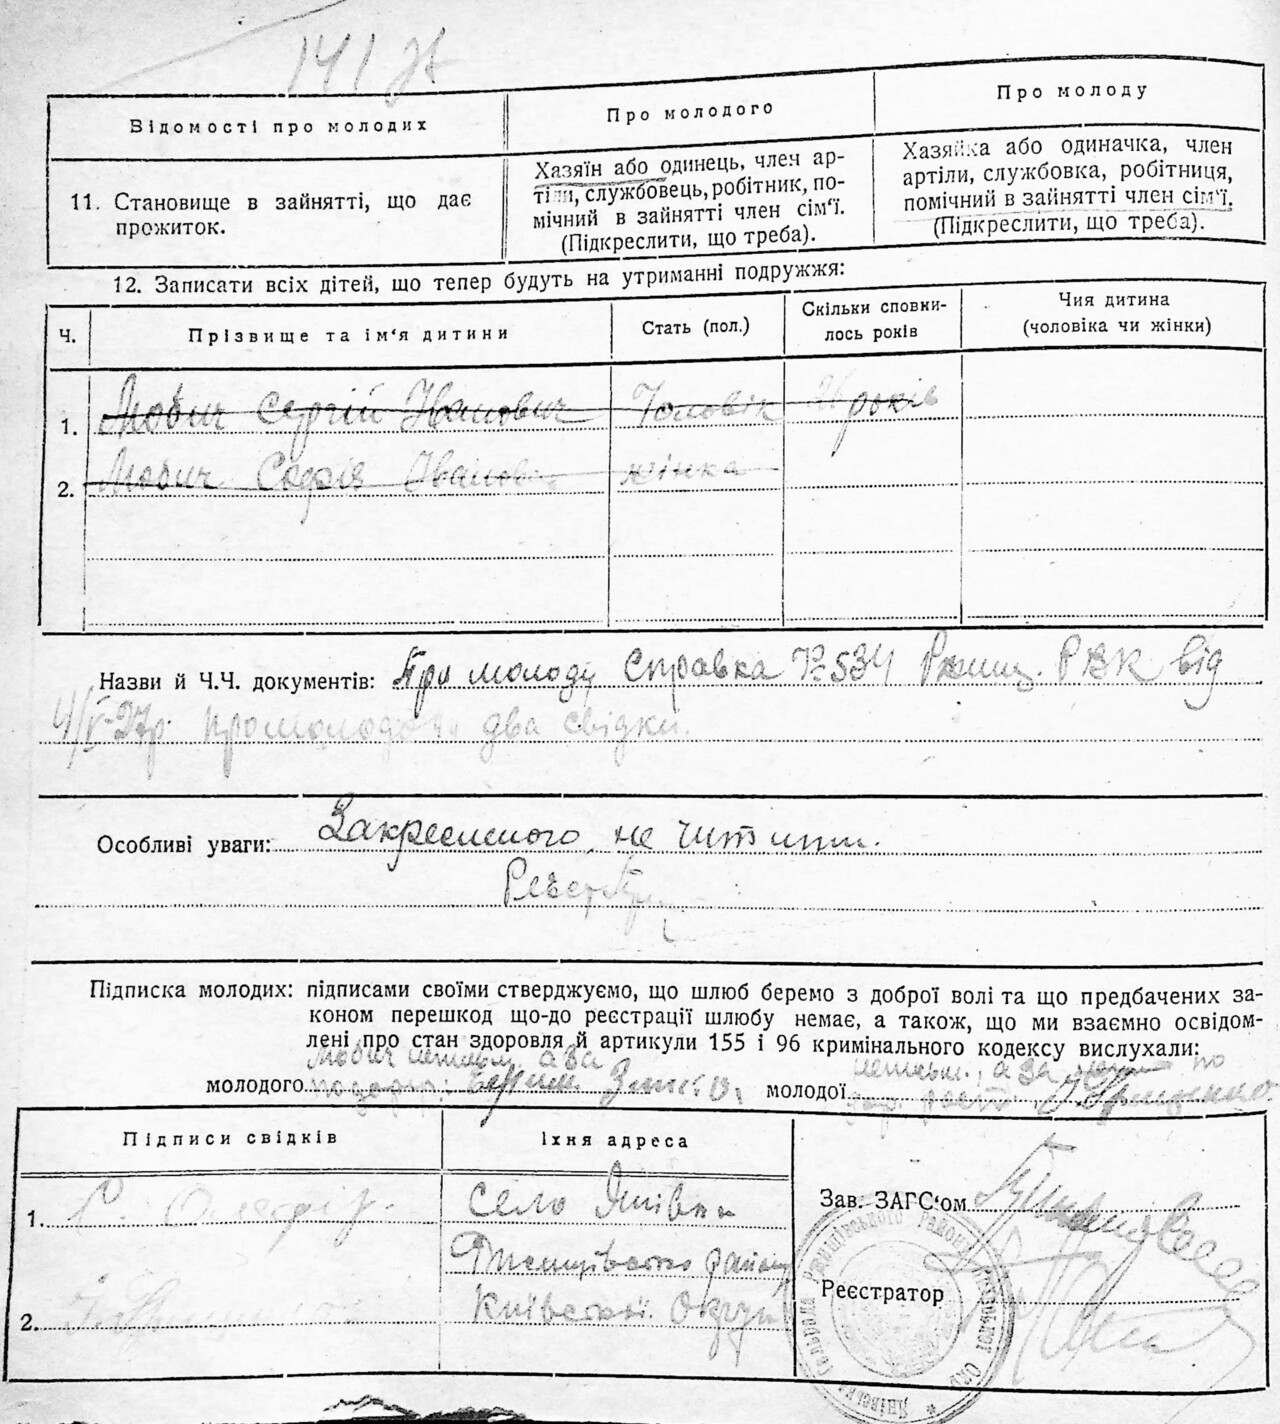 141
Відомості про молодих
Про молодого
Про молоду
11. Становище в зайнятті, що дає
прожиток.
Хазяїн або одинець, член ар-
тілі, службовець, робітник, по-
мічний в зайнятті член сім'ї.
(Підкреслити, що треба).
Хазяйка або одиначка, член
артіли, службовка, робітниця,
помічний в зайнятті член сім'ї.
(Підкреслити, що треба).
12. Записати всіх дітей, що тепер будуть на утриманні подружжя:
Ч.
Прізвище та ім'я дитини
Стать (пол.)
Скільки сповни-
лось років
Чия дитина
(чоловіка чи жінки)
1. Мобич Сергій Іванович Чоловік років
2. Мобич Софія Іванов жінка
Назви й Ч.Ч. документів: Про молоду Справка № 534 Ржищ. РВК від
4/V-27р. про молодого два свідки.
Особливі уваги: Закресленого не читати.
Підписка молодих: підписами своїми стверджуємо, що шлюб беремо з доброї волі та що предбачених за-
коном перешкод що-до реєстрації шлюбу немає, а також, що ми взаємно освідом-
лені про стан здоровля й артикули 155 і 96 кримінального кодексу вислухали:
Мобич неписьм. а за
молодого
неписьм., а за по
молодої
Підписи свідків
Їхня адреса
1. село Янівка
Ржищівського району
Київської Округи
2.
Зав. ЗАГС'ом
Реєстратор